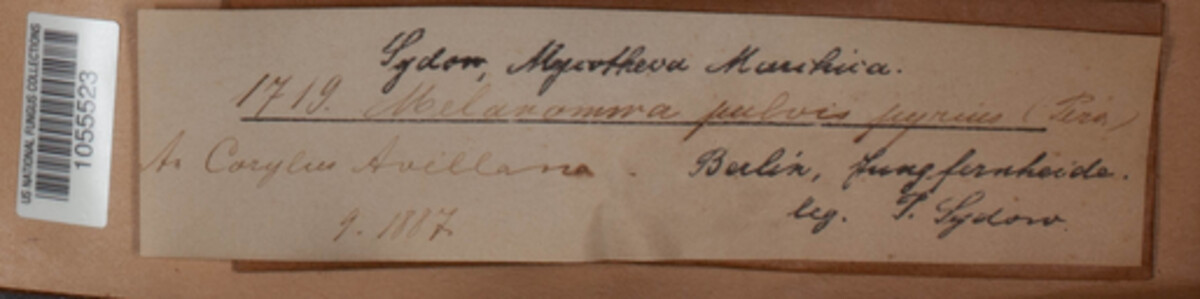 US NATIONAL FUNGUS COLLECTIONS
1055523
Sydow, Mycotheca Marchica.
1719. Melanomma pulvis pyrius (Pers.)
An Corylus Avellana. Berlin, Jungfernheide.
9. 1887. leg. P. Sydow.